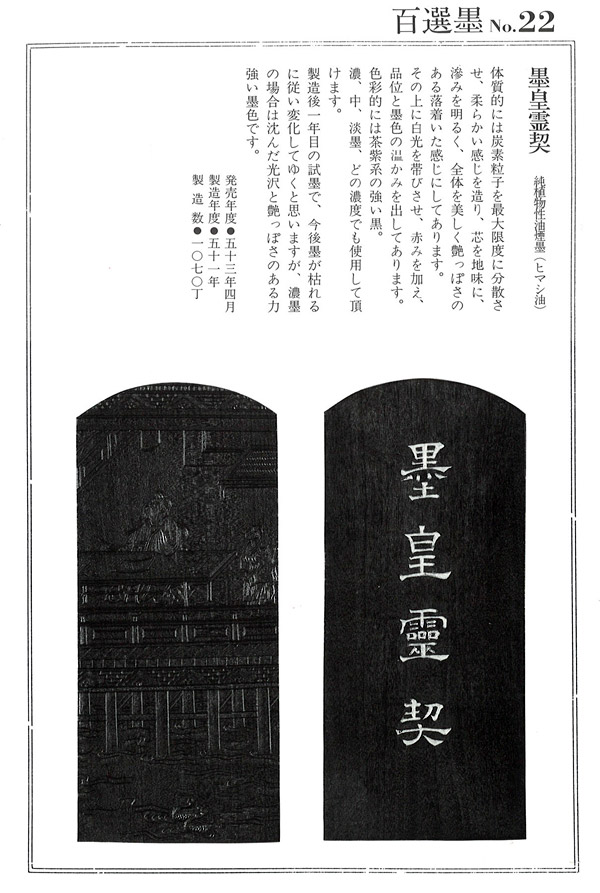 百選墨 No.22
墨皇靈契
純植物性油煙墨(ヒマシ油)
体質的には炭素粒子を最大限度に分散さ
せ、柔らかい感じを造り、芯を地味に、
滲みを明るく、全体を美しく艶っぽさの
ある落着いた感じにしてあります。
その上に白光を帯びさせ、赤みを加え、
品位と墨色の温かみを出してあります。
色彩的には茶紫系の強い黒。
濃、中、淡墨、どの濃度でも使用して頂
けます。
製造後一年目の試墨で、今後墨が枯れる
に従い変化してゆくと思いますが、濃墨
の場合は沈んだ光沢と艶っぽさのある力
強い墨色です。
発売年度●五十三年四月
製造年度●五十一年
製造数●一〇七〇丁
墨皇靈契